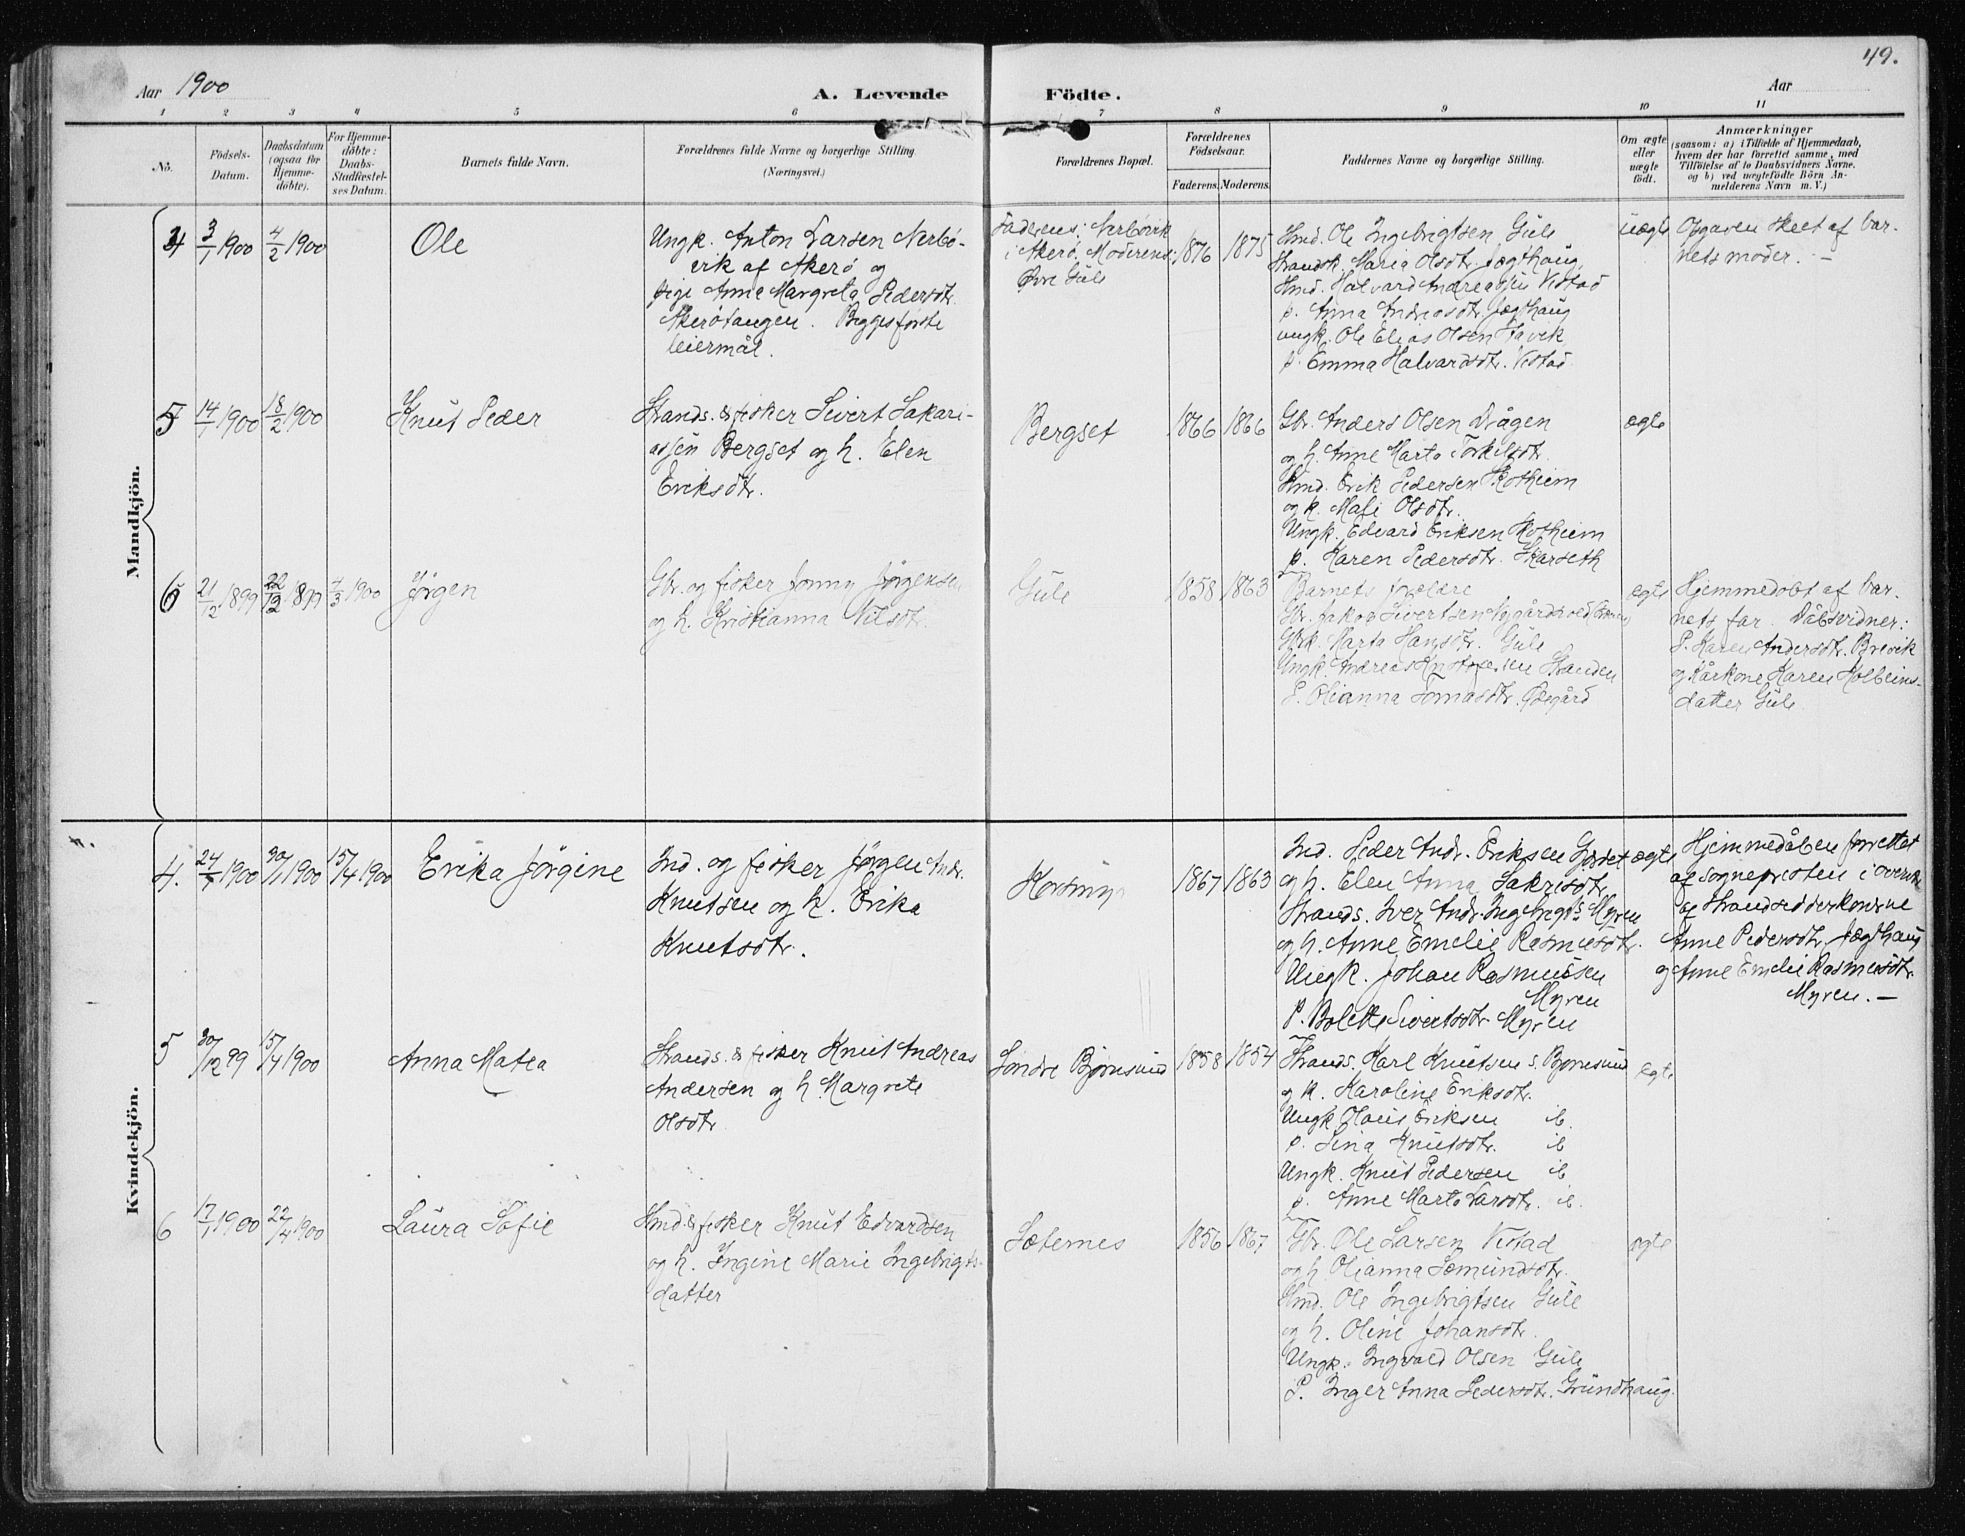 49.
Aar 1900
A. Levende Födte.
Aar
1 2 3 4 5 6 7 8 9 10 11
No.
Födsels-Datum.
Daabsdatum (ogsaa for Hjemmedøbte).
For Hjemmedöbte: Daabs-Stadfæstelses Datum.
Barnets fulde Navn.
Forældrenes fulde Navne og borgerlige Stilling. (Næringsvei.)
Forældrenes Bopæl.
Forældrenes Födselsaar.
Faderens. Moderens.
Faddernes Navne og borgerlige Stilling.
Om ægte eller uægte födt.
Anmærkninger
(saasom: a) i Tilfælde af Hjemmedaab,
hvem der har forrettet samme, med
Tilföielse af to Daabsvidners Navne.
og b) ved uægtefödte Börn An-
melderens Navn m. V.)
Mandkjön.
4 3/1 1900 4/2 1900
Ole
Ungk. Anton Larsen Nerbø-
vik af Akerö og
pige Anne Margreta Pedersdtr.
Akerötangen. Begges første
leiermål.
Faderens: Nerbövik
i Akerö. Moderens:
Övre Gule
1876 1875
Hmd. Ole Ingebrigtsen Gule
Strandk. Maria Olsdtr. Jægthaug
Hmd. Halvard Andreassen Vestad
p. Anna Andreasdtr. Jægthaug
ungk. Ole Elias Olsen Havik
p. Emma Halvardsdtr. Vestad
uægte
Opgaven skeet af bar-
nets moder. —
5 14/1 1900 18/2 1900
Knut Peder
Strands. & fisker Sivert Sakari-
assen Bergset og h. Elen
Eriksdtr.
Bergset
1866 1866
Gbr. Anders Olsen Drågen
og h. Anne Marta Torkelsdtr.
Hmd. Erik Pedersen Rotheim
og k. Mali Olsdtr.
Ungk. Edvard Eriksen Rotheim
p. Karen Pedersdtr. Skarseth
ægte
6 21/12 1899 22/12 1899 4/3 1900
Jørgen
Gbr. og fisker Jonny Jørgensen
og h. Kristianna Nilsdtr.
Gule
1858 1863
Barnets forældre
Gbr. Jakob Sivertsen
Gbk. Marta Hansdtr. Gule
Ungk. Andreas Kristofersen Standen
P. Olianna Tomasdtr. Ødegård
ægte
Hjemmedøbt af bar-
nets far. Dåbsvidner:
P. Karen Andersdtr. Brevik
og Kårkone Karen Kolbeins-
datter Gule
Kvindekjön.
4. 24/1 1900 30/1 1900 15/4 1900
Erika Jørgine
Ind. og fisker Jørgen Andr.
Knutsen og h. Erika
Knutsdtr.
1867 1863
Ind. Peder Andr. Eriksen Gjerdet
og h. Elen Anna Sakrisdtr.
Strands. Iver Andr. Ingebrigts. Myren
og h. Anne Emelie Rasmusdtr.
Ungk. Johan Rasmussen
Myren
P. Bolette Sivertsdtr. Myren
ægte
Hjemmedåben forrettet
af sognepresten i overv.
af strandsidderkonerne
Anne Pedersdtr. Jægthaug
og Anne Emelie Rasmusdtr.
Myren. —
5 30/12 99 15/4 1900
Anna Matea
Strands. & fisker Knut Andreas
Andersen og h. Margrete
Olsdtr.
Søndre Bjørnsund
1858 1854
Strands. Karl Knutsen s. Bjørnsund
og k. Karoline Eriksdtr.
Ungk. Olaus Eriksen ib.
p. Sina Knutsdtr. ib
Ungk. Knut Pedersen ib
p. Anne Marta Larsdtr. ib.
ægte
6 17/1 1900 22/4 1900
Laura Sofie
Hmd. & fisker Knut Edvardsen
og h. Ingine Marie Ingebrigts-
datter
Sæternes
1856 1867
Gbr. Ole Larsen Vestad
og h. Olianna Semundsdtr.
Hmd. Ole Ingebrigtsen Gule
og h. Oline Johansdtr.
Ungk. Ingvald Olsen Gule
P. Inger Anna Pedersdtr. Grundhaug.
ægte